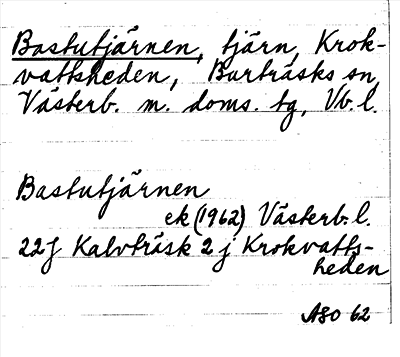 Bastutjärnen, tjärn, Krok-
vattsheden, Burträsks sn,
Västerb. m. doms. tg, Vb. l.
Bastutjärnen
ek (1962) Västerb. l.
22 J Kalvträsk 2 j Krokvatts-
heden
ASO 62